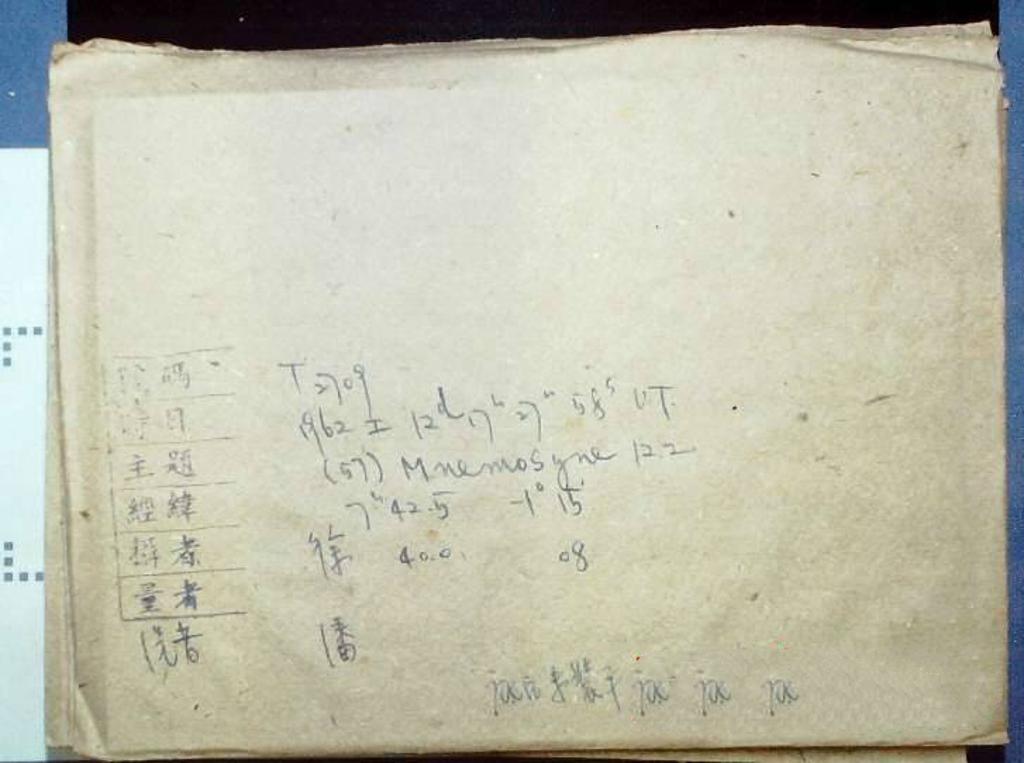 號碼 T 2709
時日 1962 I 12ᵈ 17ʰ 27ᵐ 58ˢ UT.
主題 (57) Mnemosyne 12.2
經緯 7ʰ 42.5 -1° 15'
攝者 徐 40.0. 08
量者
洗者 潘